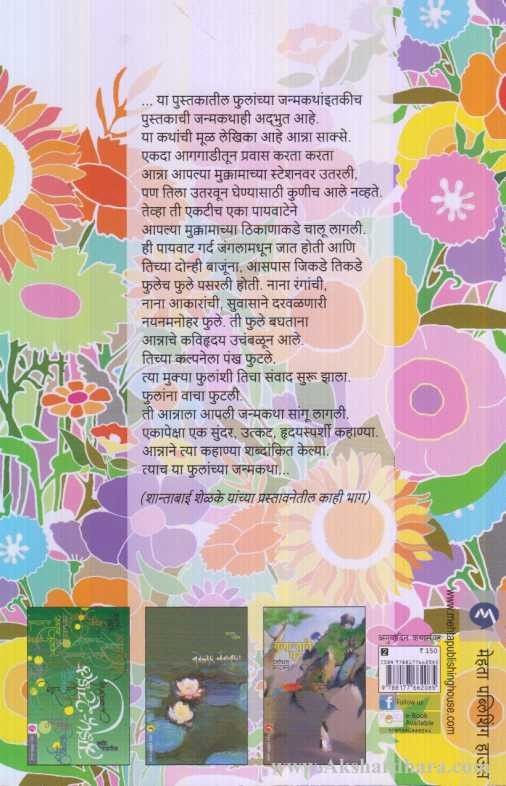 ... या पुस्तकातील फुलांच्या जन्मकथांइतकीच
पुस्तकाची जन्मकथाही अद्भुत आहे.
या कथांची मूळ लेखिका आहे आन्ना साक्से.
एकदा आगगाडीतून प्रवास करता करता
आन्ना आपल्या मुक्कामाच्या स्टेशनवर उतरली,
पण तिला उतरवून घेण्यासाठी कुणीच आले नव्हते.
तेव्हा ती एकटीच एका पायवाटेने
आपल्या मुक्कामाच्या ठिकाणाकडे चालू लागली.
ही पायवाट गर्द जंगलामधून जात होती आणि
तिच्या दोन्ही बाजूंना, आसपास जिकडे तिकडे
फुलेच फुले पसरली होती. नाना रंगांची,
नाना आकारांची, सुवासाने दरवळणारी
नयनमनोहर फुले. ती फुले बघताना
आन्नाचे कविहृदय उचंबळून आले.
तिच्या कल्पनेला पंख फुटले.
त्या मुक्या फुलांशी तिचा संवाद सुरू झाला.
फुलांना वाचा फुटली.
ती आन्नाला आपली जन्मकथा सांगू लागली.
एकापेक्षा एक सुंदर, उत्कट, हृदयस्पर्शी कहाण्या.
आन्नाने त्या कहाण्या शब्दांकित केल्या.
त्याच या फुलांच्या जन्मकथा...
(शान्ताबाई शेळके यांच्या प्रस्तावनेतील काही भाग)
मेहता पब्लिशिंग हाऊस
www.mehtapublishinghouse.com
अनुवादित कथासंग्रह
2
₹ 150
Follow us
e-Book
Available
www.Akshardhara.com